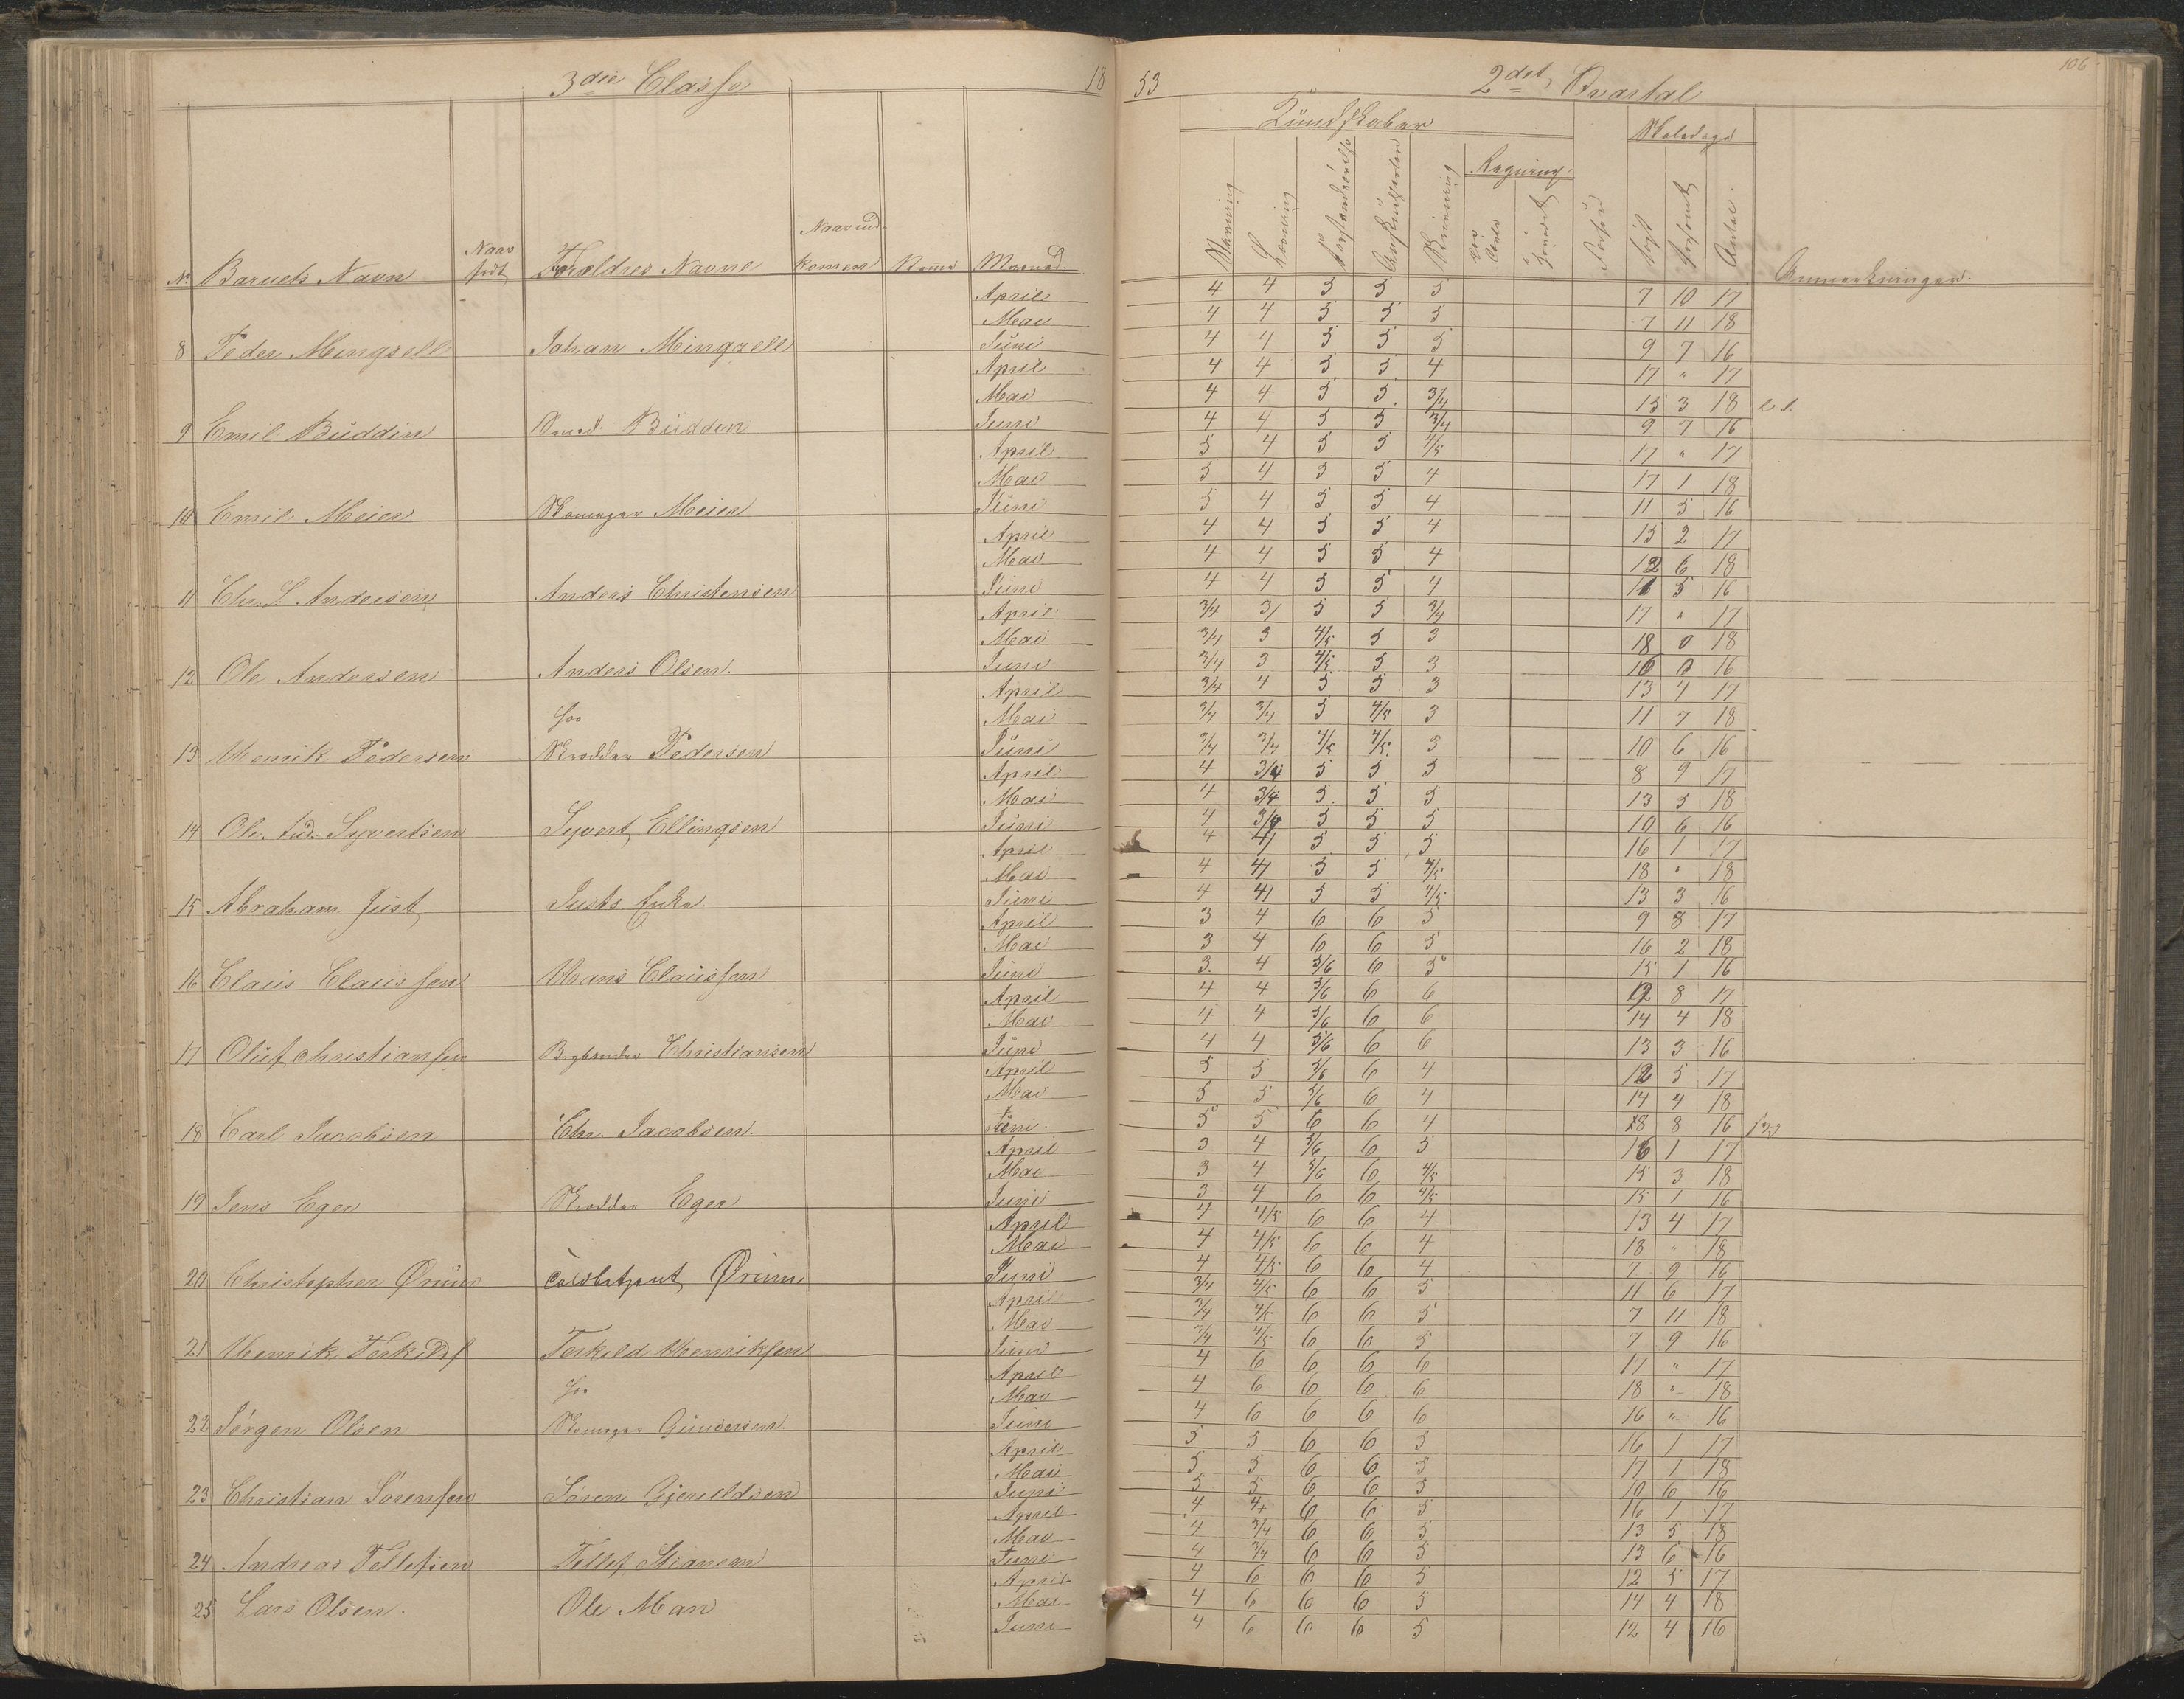 106
3die Classe 18 53 2det Qvartal
Kundskaber
Skoledage
Regning
Naar ind-
Skrivning Læsning Forstandsøvelse Religion
No Barnets Navn Naar født Forældres Navne kommen Maaned Søgt Forsømt Antal Anmerkninger
April 4 4 5 5 5 7 10 17
Mai 4 4 5 5 5 7 11 18
8 Peder Mingzell Johan Mingzell Juni 4 4 5 5 5 9 7 16
April 4 4 5 5 4 17 " 17
Mai 4 4 5 5 3/4 15 3 18
9 Emil Budden Budden Juni 4 4 5 5 3/4 9 7 16
April 5 4 5 5 4/5 17 " 17
Mai 5 4 5 5 4 17 1 18
10 Emil Meier Skomager Meier Juni 5 4 5 5 4 11 5 16
April 4 4 5 5 4 15 2 17
Mai 4 4 5 5 4 12 6 18
11 Chr. S. Andersen Anders Christensen Juni 4 4 5 5 4 11 5 16
April 3/4 3/ 5 5 3/4 17 " 17
Mai 3/4 3 4/5 5 3 18 0 18
12 Ole Andersen Anders Olsen Juni 3/4 3 4/5 5 3 16 0 16
April 3/4 4 5 5 3 13 4 17
Mai 3/4 3/4 5 4/5 3 11 7 18
13 Henrik Pedersen Skrædder Pedersen Juni 3/4 3/4 4/5 4/5 3 10 6 16
April 4 3/4 5 5 5 8 9 17
Mai 4 3/4 5 5 5 13 5 18
14 Ole Lud. Syvertsen Syvert Ellingsen Juni 4 3/4 5 5 5 10 6 16
April 4 4 5 5 5 16 1 17
Mai 4 4 5 5 4/5 18 " 18
15 Abraham Just Justs Enke Juni 4 4 5 5 4/5 13 3 16
April 3 4 6 6 5 9 8 17
Mai 3 4 6 6 5 16 2 18
16 Claus Claussen Hans Claussen Juni 3 4 5/6 6 5 15 1 16
April 4 4 5/6 6 6 8 17
Mai 4 4 5/6 6 6 14 4 18
17 Oluf Christiansen Christiansen Juni 4 4 5/6 6 6 13 3 16
April 5 5 5/6 6 4 12 5 17
Mai 5 5 5/6 6 4 14 4 18
18 Carl Jacobsen Chr. Jacobsen Juni 5 5 6 6 4 8 16
April 3 4 5/6 6 5 16 1 17
Mai 3 4 5/6 6 4/5 15 3 18
19 Jens Eger Skrædder Eger Juni 3 4 6 6 4/5 15 1 16
April 4 4/5 6 6 4 13 4 17
Mai 4 4/5 6 6 4 18 " 18
20 Christopher Ørum Ørum Juni 4 4/5 6 6 4 7 9 16
April 3/4 4/5 6 6 5 11 6 17
Mai 3/4 4/5 6 6 5 7 11 18
21 Henrik Terkelds Terkeld Henriksen Juni 3/4 4/5 6 6 5 7 9 16
April 4 6 6 6 6 17 " 17
Mai 4 6 6 6 6 18 " 18
22 Jørgen Olsen Skomager Gundersen Juni 4 6 6 6 6 16 " 16
April 5 5 6 6 5 16 1 17
Mai 5 5 6 6 5 17 1 18
23 Christian Sørensen Søren Gjeruldsen Juni 5 5 6 6 5 10 6 16
April 4 4+ 6 6 5 16 1 17
Mai 4 3/4 6 6 5 13 5 18
24 Andreas Tellefsen Tellef Stiansen Juni 4 3/4 6 6 5 13 6 16
April 4 6 6 6 5 12 5 17
Mai 4 6 6 6 5 14 4 18
25 Lars Olsen Ole Man Juni 4 6 6 6 5 12 4 16